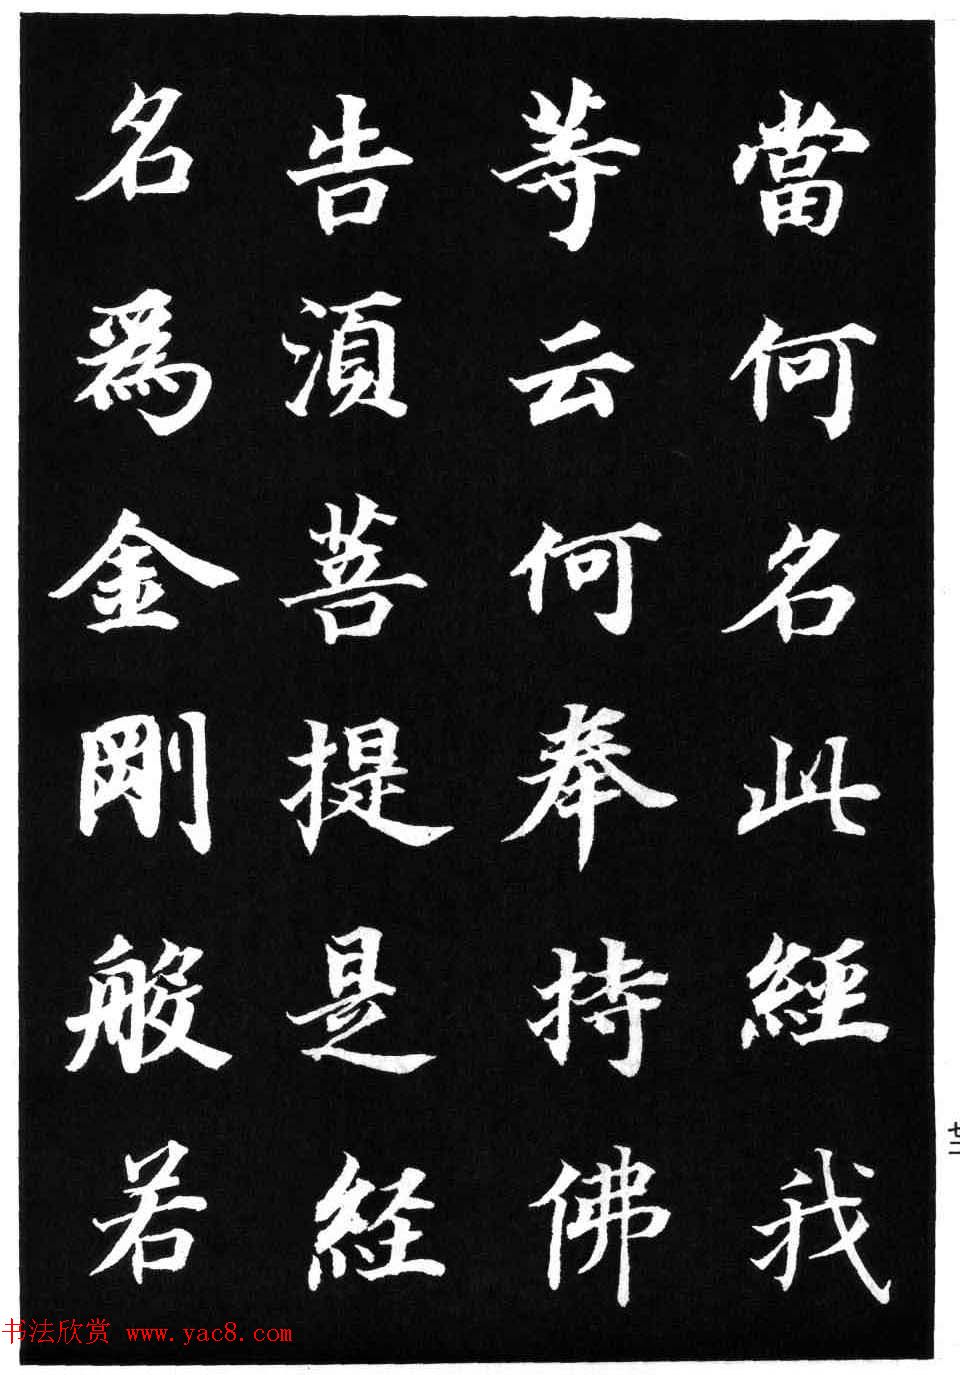 當何名此經我
等云何奉持佛
告湏菩提是経
名爲金剛般若
七二
书法欣赏 www.yac8.com